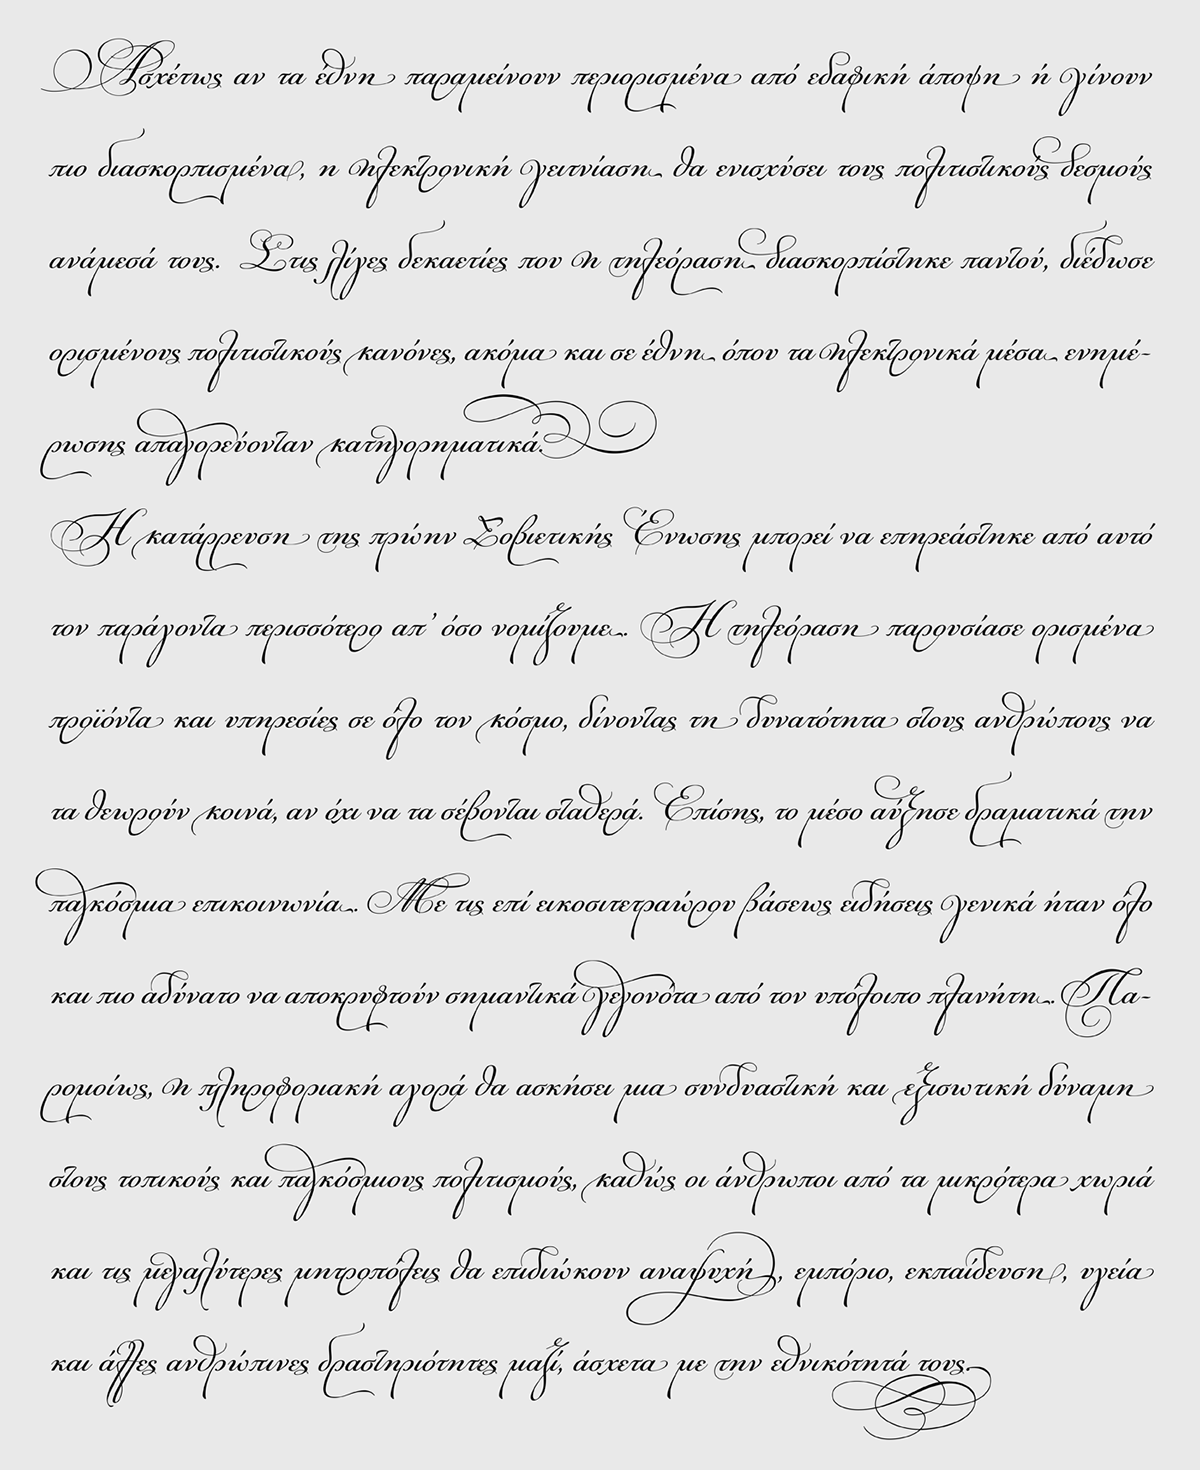 Ασχέτως αν τα έθνη παραμείνουν περιορισμένα από εδαφική άποψη ή γίνουν
πιο διασκορπισμένα, η ηλεκτρονική γειτνίαση θα ενισχύσει τους πολιτιστικούς δεσμούς
ανάμεσά τους. Στις λίγες δεκαετίες που η τηλεόραση διασκορπίστηκε παντού, διέδωσε
ορισμένους πολιτιστικούς κανόνες, ακόμα και σε έθνη όπου τα ηλεκτρονικά μέσα ενημέ-
ρωσης απαγορεύονταν κατηγορηματικά.
Η κατάρρευση της πρώην Σοβιετικής Ένωσης μπορεί να επηρεάστηκε από αυτό
τον παράγοντα περισσότερο απ’ όσο νομίζουμε. Η τηλεόραση παρουσίασε ορισμένα
προϊόντα και υπηρεσίες σε όλο τον κόσμο, δίνοντας τη δυνατότητα στους ανθρώπους να
τα θεωρούν κοινά, αν όχι να τα σέβονται σταθερά. Επίσης, το μέσο αύξησε δραματικά την
παγκόσμια επικοινωνία. Με τις επί εικοσιτετραώρου βάσεως ειδήσεις γενικά ήταν όλο
και πιο αδύνατο να αποκρυφτούν σημαντικά γεγονότα από τον υπόλοιπο πλανήτη. Πα-
ρομοίως, η πληροφοριακή αγορά θα ασκήσει μια συνδυαστική και εξισωτική δύναμη
στους τοπικούς και παγκόσμιους πολιτισμούς, καθώς οι άνθρωποι από τα μικρότερα χωριά
και τις μεγαλύτερες μητροπόλεις θα επιδιώκουν αναψυχή, εμπόριο, εκπαίδευση, υγεία
και άλλες ανθρώπινες δραστηριότητες μαζί, άσχετα με την εθνικότητά τους.